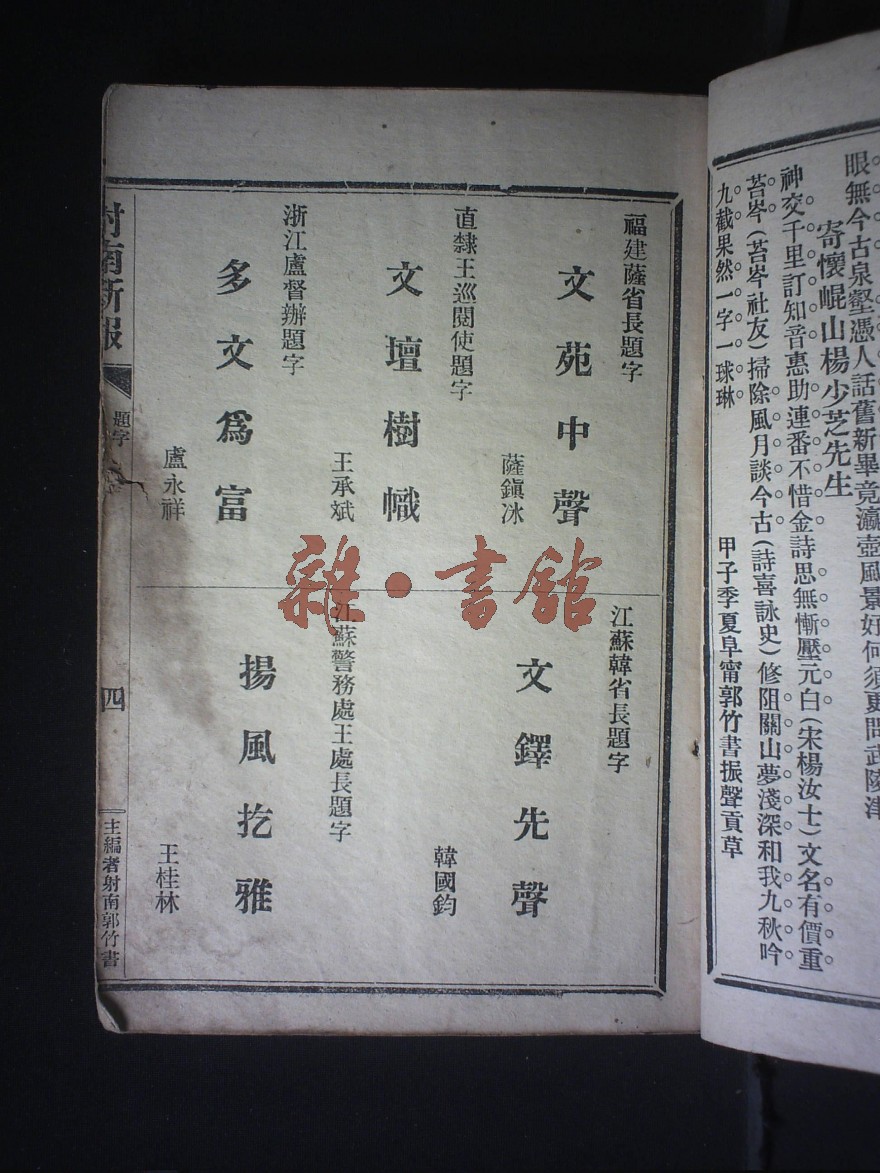 眼無今古泉壑憑人話舊新畢竟瀛壺風景好何須更問武陵津
寄懷崐山楊少芝先生
神交千里訂知音惠助連番不惜金詩思無慚壓元白(宋楊汝士)文名有價重
苔岑(苔岑社友)掃除風月談今古(詩喜詠史)修阻關山夢淺深和我九秋吟
九截果然一字一球琳
甲子季夏阜甯郭竹書振聲貢草
福建薩省長題字
文苑中聲
薩鎭冰
直隸王巡閱使題字
文壇樹幟
王承斌
浙江盧督辦題字
多文爲富
盧永祥
江蘇韓省長題字
文鐸先聲
韓國鈞
江蘇警務處王處長題字
揚風扢雅
王桂林
射南新報
題字
四
主編者射南郭竹書
雜·書館